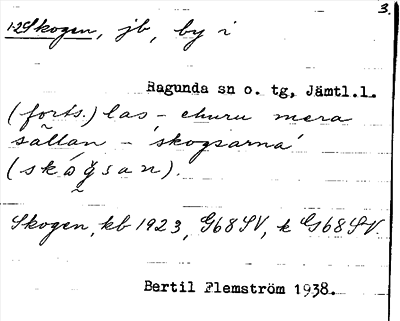 3.
1-2 Skogen, jb, by i
Ragunda sn o. tg, Jämtl.l.
(forts.) las - ehuru mera
sällan - 'skogsarna'
(skógsan).
Skogen, kb 1923, G68SV, k G68SV.
Bertil Flemström 1938.